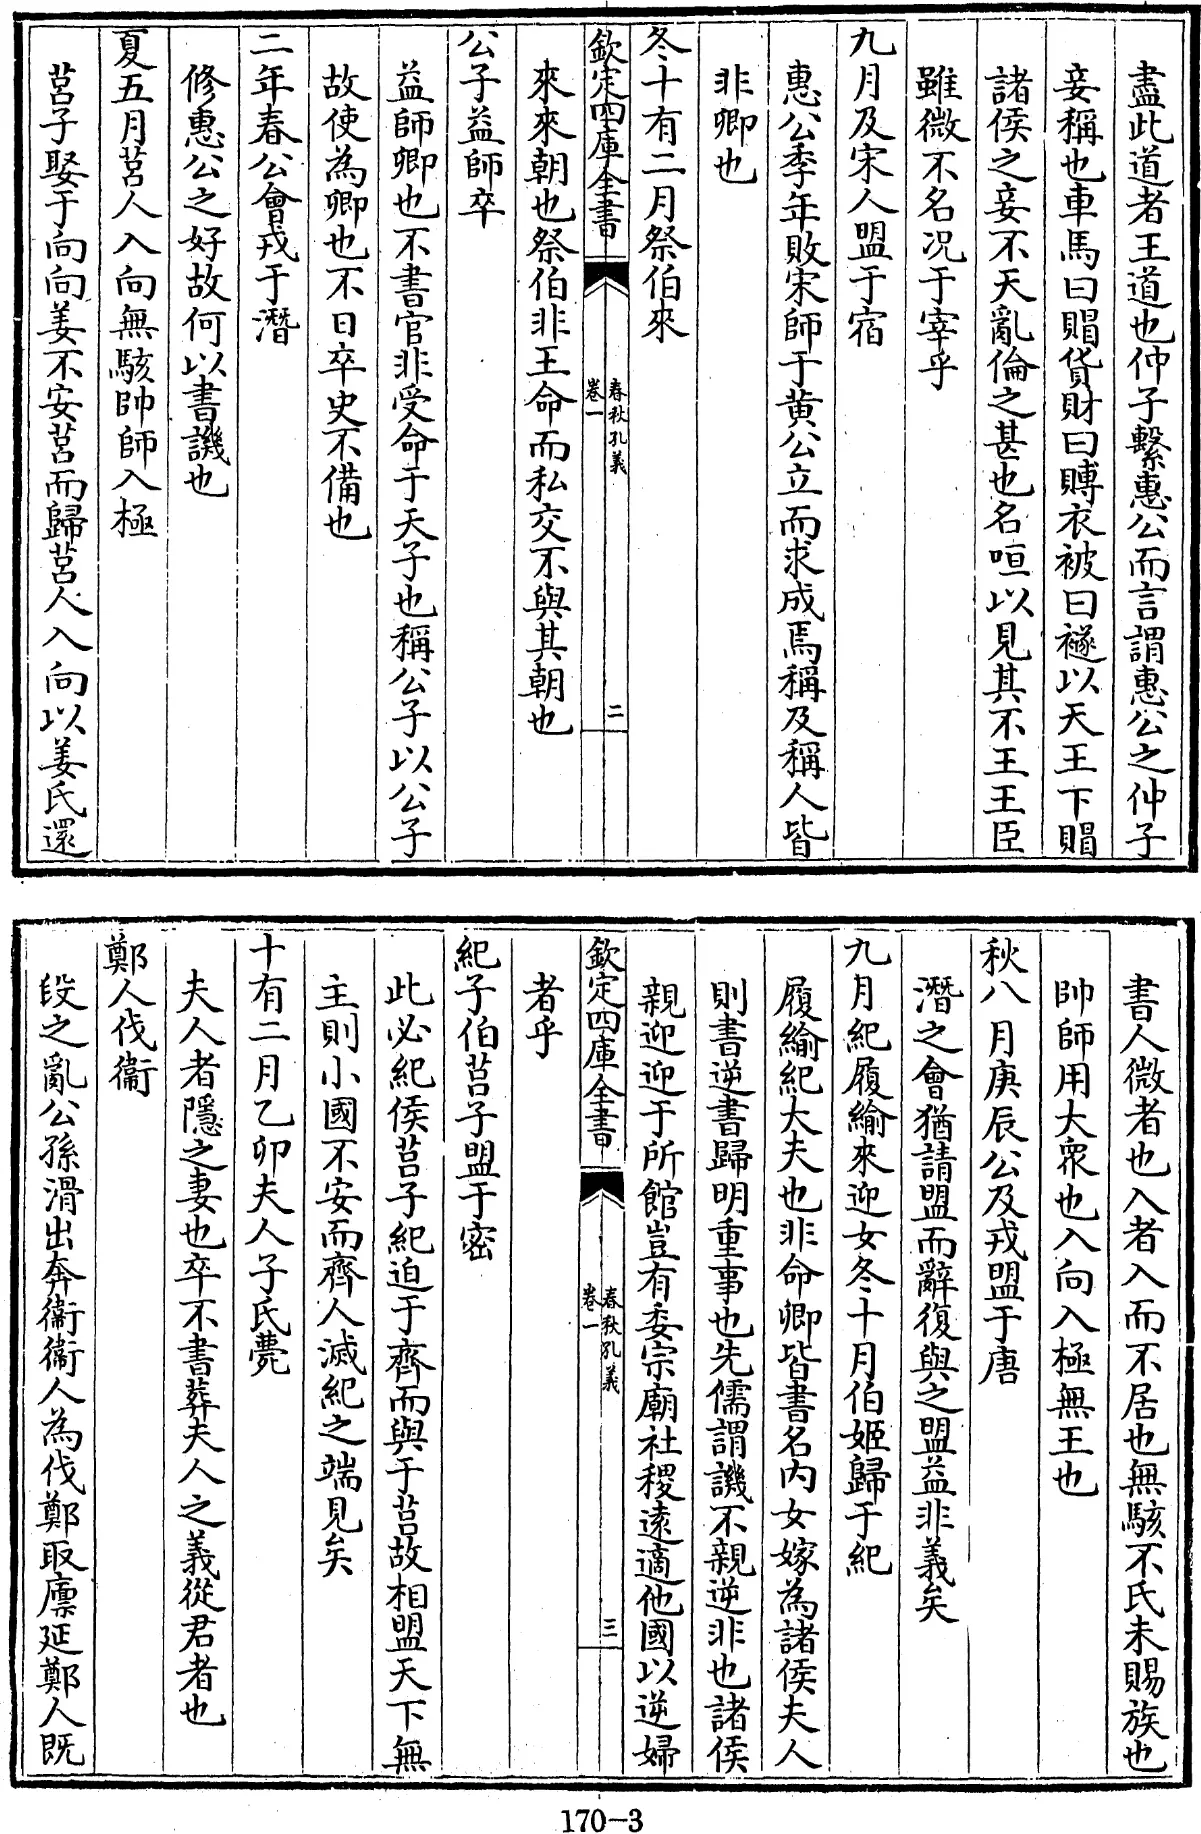 盡此道者王道也仲子繫惠公而言謂惠公之仲子
妾稱也車馬曰賵貨財曰賻衣被曰襚以天王下賵
諸侯之妾不天亂倫之甚也名咺以見其不王王臣
雖微不名况于宰乎
九月及宋人盟于宿
惠公季年敗宋師于黄公立而求成焉稱及稱人皆
非卿也
冬十有二月祭伯來
欽定四庫全書
春秋孔義
卷一
二
來來朝也祭伯非王命而私交不與其朝也
公子益師卒
益師卿也不書官非受命于天子也稱公子以公子
故使為卿也不日卒史不備也
二年春公會戎于潛
修惠公之好故何以書譏也
夏五月莒人入向無駭帥師入極
莒子娶于向向姜不安莒而歸莒人入向以姜氏還
書人微者也入者入而不居也無駭不氏未賜族也
帥師用大衆也入向入極無王也
秋八月庚辰公及戎盟于唐
潛之會猶請盟而辭復與之盟益非義矣
九月紀履緰來迎女冬十月伯姬歸于紀
履緰紀大夫也非命卿皆書名内女嫁為諸侯夫人
則書逆書歸明重事也先儒謂譏不親逆非也諸侯
親迎迎于所館豈有委宗廟社稷逺適他國以逆婦
欽定四庫全書
春秋孔義
卷一
三
者乎
紀子伯莒子盟于密
此必紀侯莒子紀迫于齊而與于莒故相盟天下無
主則小國不安而齊人滅紀之端見矣
十有二月乙卯夫人子氏薨
夫人者隱之妻也卒不書葬夫人之義從君者也
鄭人伐衞
段之亂公孫滑出奔衞衞人為伐鄭取廪延鄭人既
170-3